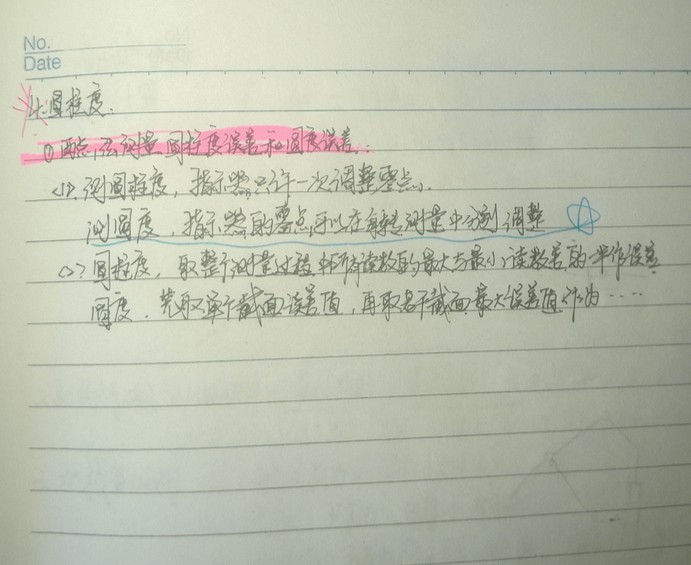 No.
Date
4. 圆柱度.
① 两点法测量圆柱度误差和圆度误差:
<1>. 测圆柱度, 指示器只许一次调整零点.
测圆度, 指示器的零点可以在每转测量中分别调整
<2>? 圆柱度, 取整个测量过程中所有读数的最大与最小读数差的一半作误差
圆度, 先取单个截面误差值, 再取各个截面最大误差值作为……